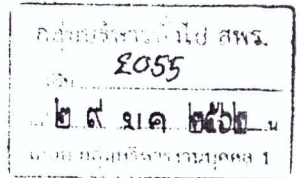 กลุ่มบริหารทั่วไป สพร.
๕๐55
๒ ๙ ม.ค. ๒๕๖๒ น
กลุ่มบริหารงานบุคคล 1